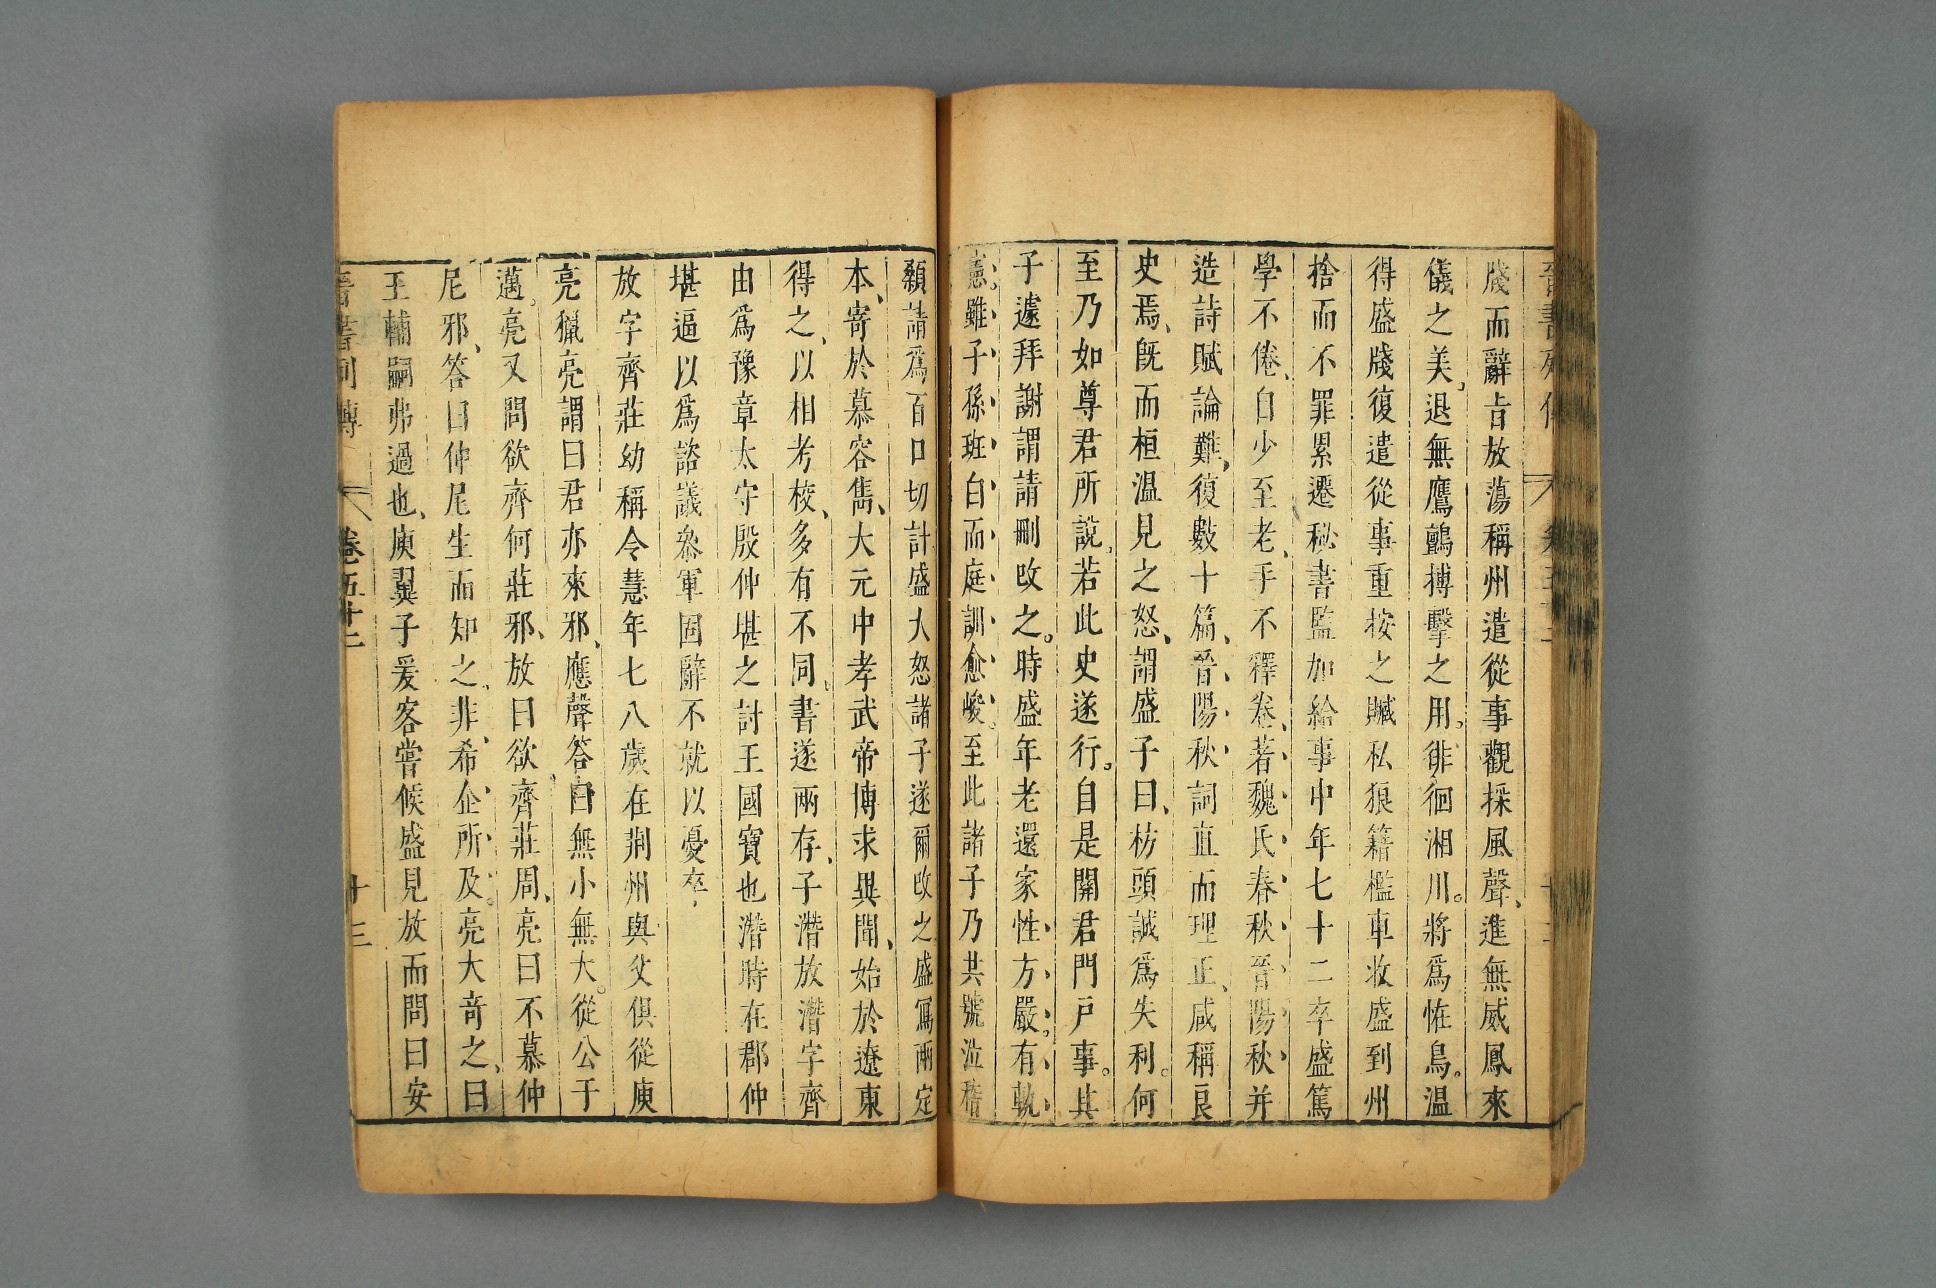 牋而辭旨放蕩稱州遣從事觀採風聲、進無威鳳來
儀之美。退無鷹鸇搏擊之用。徘徊湘川。將爲怪鳥。溫
得盛牋復遣從事重按之贓私狼籍檻車收盛到州
捨而不罪累遷秘書監加給事中年七十二卒盛篤
學不倦、自少至老、手不釋卷、著魏氏春秋晉陽秋并
造詩賦論難、復數十篇、晉陽秋詞直而理正、咸稱良
史焉、旣而桓溫見之怒、謂盛子曰、枋頭誠爲失利。何
至乃如尊君所說、若此史遂行。自是關君門戶事。其
子遽拜謝謂請刪改之。時盛年老還家性方嚴。有軌
憲。雖子孫班白而庭訓愈峻。至此諸子乃共號泣稽
顙請爲百口切計盛大怒諸子遂爾改之盛寫兩定
本、寄於慕容儁、大元中孝武帝博求異聞、始於遼東
得之、以相考校、多有不同。書遂兩存、子潛放潛字齊
由爲豫章太守殷仲堪之討王國寶也潛時在郡仲
堪逼以爲諮議參軍固辭不就以憂卒
放字齊莊幼稱令慧年七八歲在荊州與父俱從庾
亮獵亮謂曰君亦來邪、應聲答曰無小無大。從公于
邁。亮又問欲齊何莊邪、放曰欲齊莊周、亮曰不慕仲
尼邪、答曰仲尼生而知之、非希企所及。亮大奇之、曰
王輔嗣弗過也、庾翼子爰客嘗候盛見放而問曰安
晉書列傳 卷五十二 十三